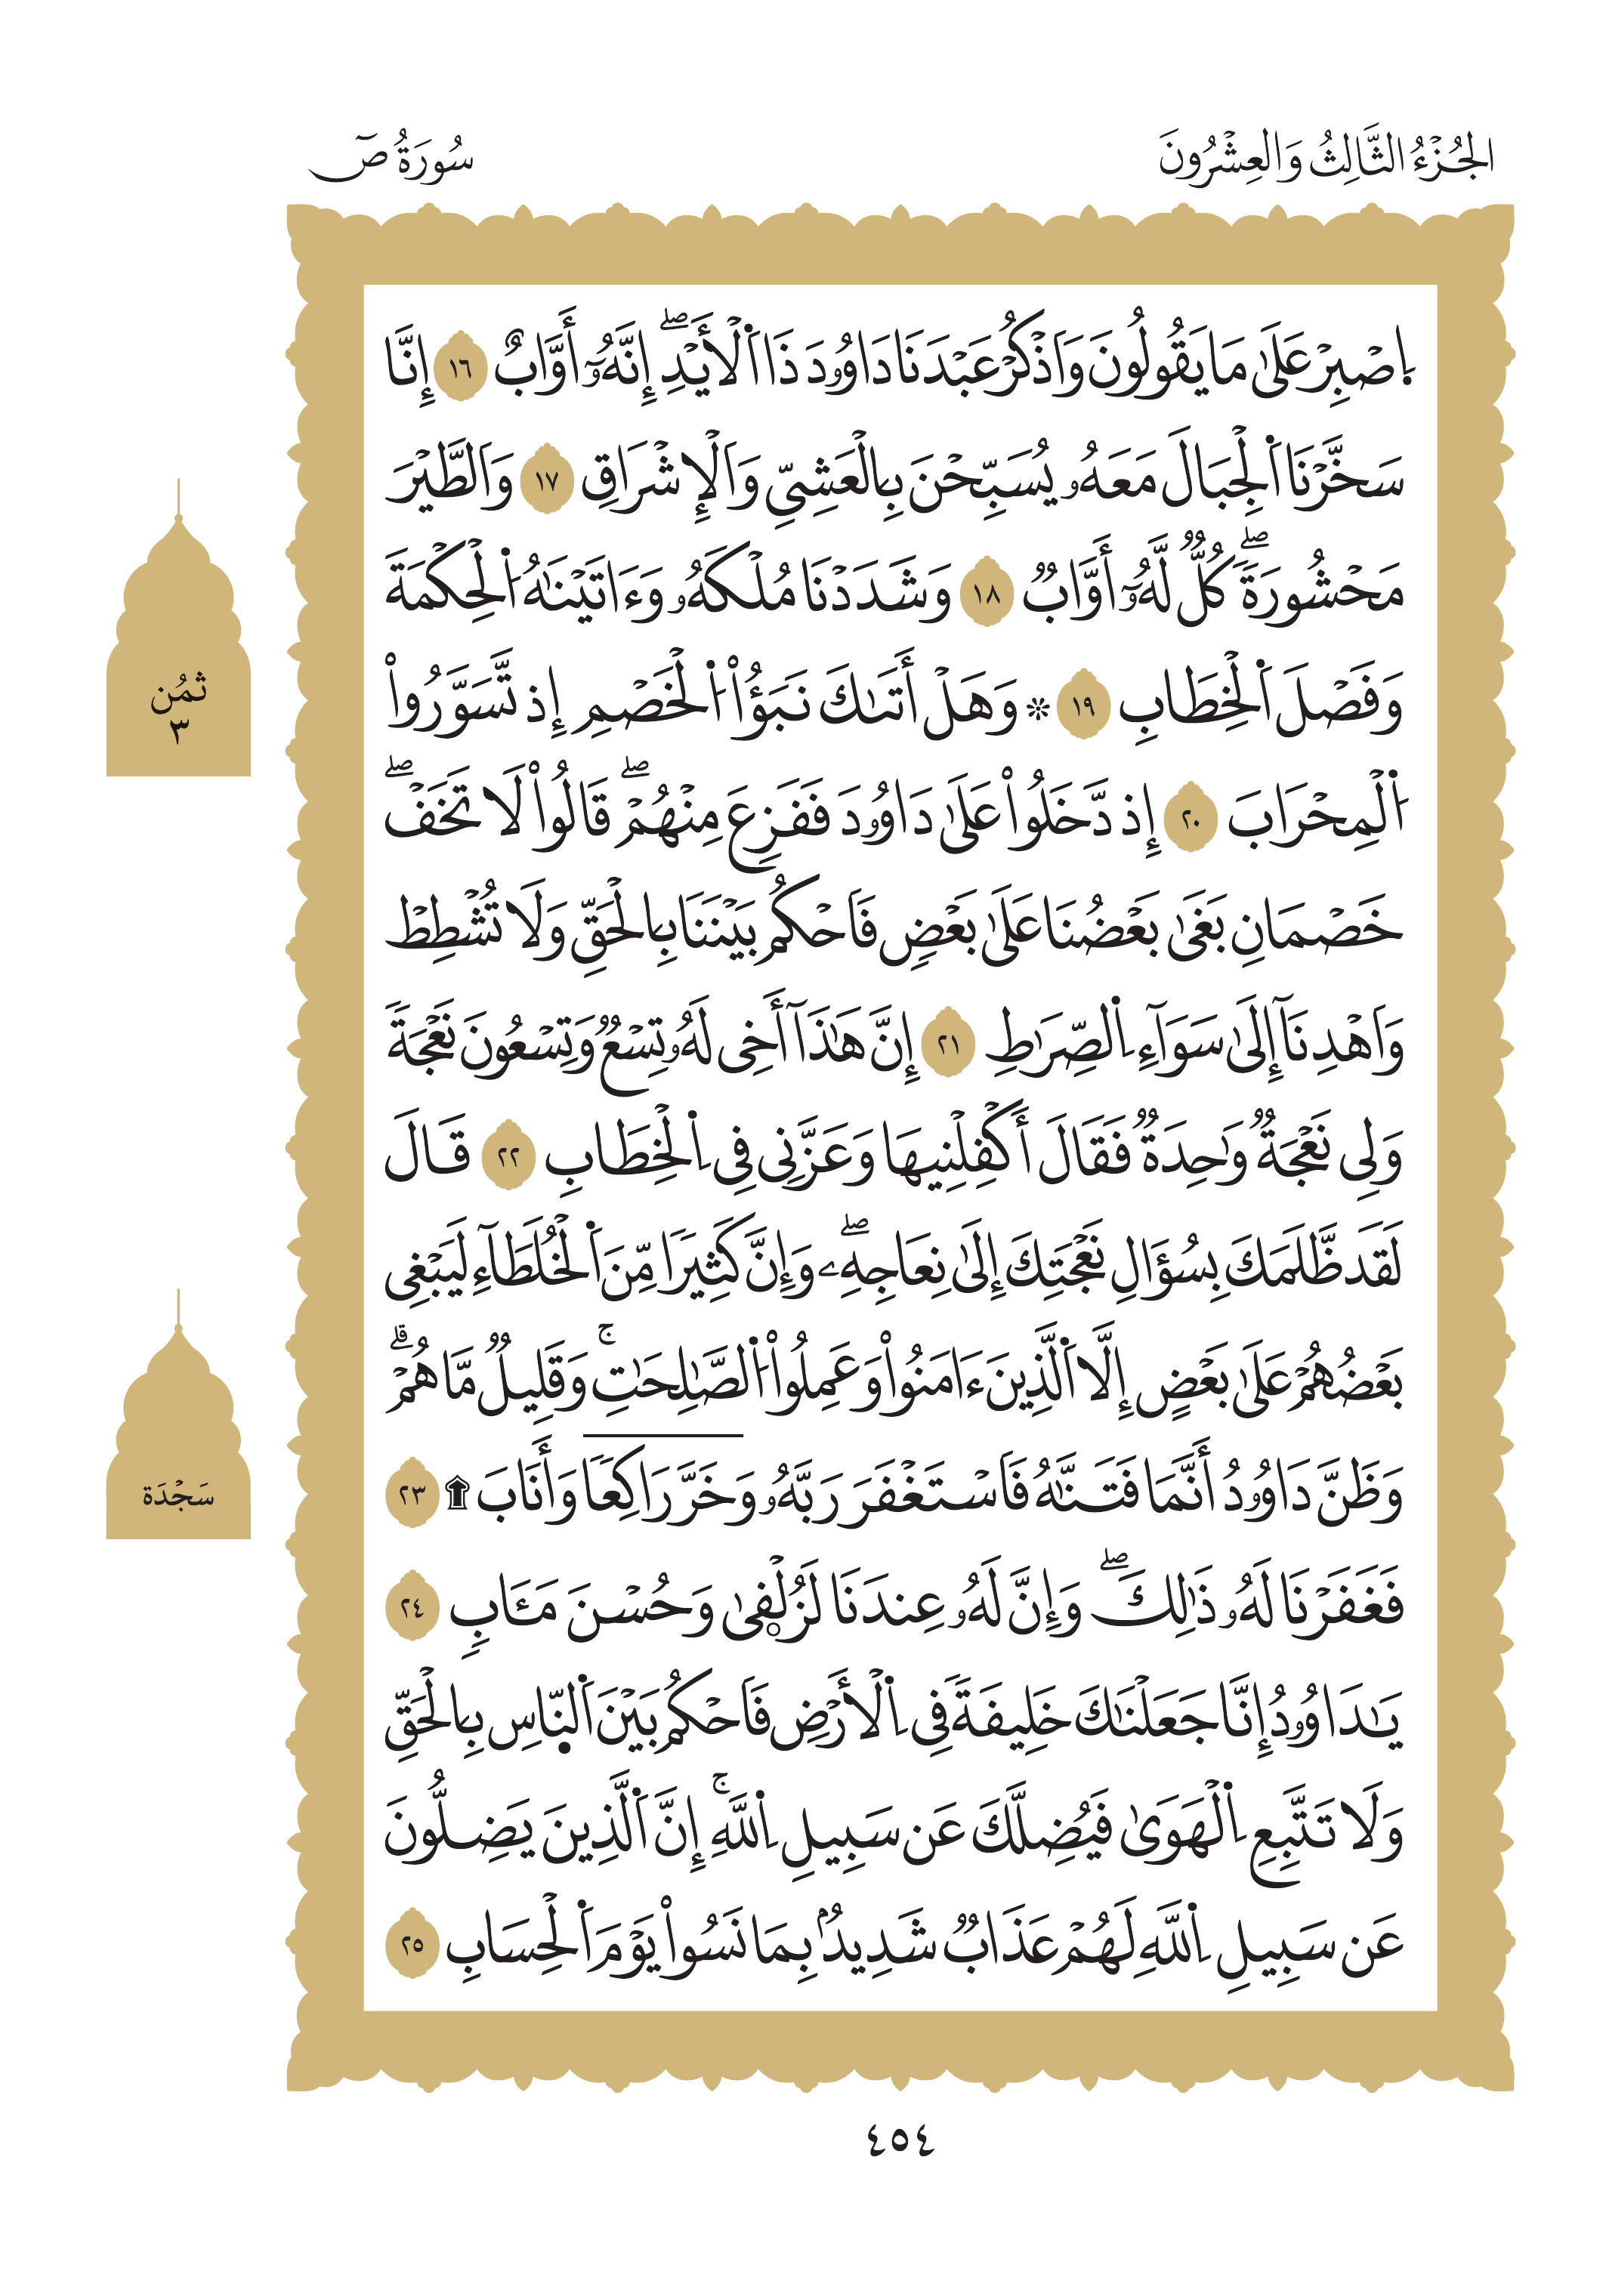 الجُزْءُ الثَّالِثُ وَالعِشْرُونَ
سُورَةُ صٓ
اِ۪صْبِرْ عَلَىٰ مَا يَقُولُونَ وَاَذْكُرْ عَبْدَنَا دَاوُۥدَ ذَا اَ۬لْأَيْدِۖ إِنَّهُۥٓ أَوَّابٌ ١٦ إِنَّا
سَخَّرْنَا اَ۬لْجِبَالَ مَعَهُۥ يُسَبِّحْنَ بِالْعَشِيِّ وَالْإِشْرَاقِ ١٧ وَالطَّيْرَ
مَحْشُورَةٗۖ كُلّٞ لَّهُۥٓ أَوَّابٞ ١٨ وَشَدَدْنَا مُلْكَهُۥ وَءَاتَيْنَٰهُ اُ۬لْحِكْمَةَ
وَفَصْلَ اَ۬لْخِطَابِ ١٩ ۞ وَهَلْ أَتَىٰكَ نَبَؤُاْ اُ۬لْخَصْمِ إِذ تَّسَوَّرُواْ
اُ۬لْمِحْرَابَ ٢٠ إِذ دَّخَلُواْ عَلَىٰ دَاوُۥدَ فَفَزِعَ مِنْهُمْۖ قَالُواْ لَا تَخَفْۖ
خَصْمَانِ بَغَىٰ بَعْضُنَا عَلَىٰ بَعْضٖ فَاحْكُم بَيْنَنَا بِالْحَقِّ وَلَا تُشْطِطْ
وَاهْدِنَآ إِلَىٰ سَوَآءِ اِ۬لصِّرَٰطِ ٢١ إِنَّ هَٰذَآ أَخِي لَهُۥ تِسْعٞ وَتِسْعُونَ نَعْجَةٗ
وَلِي نَعْجَةٞ وَٰحِدَةٞ فَقَالَ أَكْفِلْنِيهَا وَعَزَّنِي فِي اِ۬لْخِطَابِ ٢٢ قَالَ
لَقَد ظَّلَمَكَ بِسُؤَالِ نَعْجَتِكَ إِلَىٰ نِعَاجِهِۦۖ وَإِنَّ كَثِيرٗا مِّنَ اَ۬لْخُلَطَآءِ لَيَبْغِي
بَعْضُهُمْ عَلَىٰ بَعْضٍ إِلَّا اَ۬لَّذِينَ ءَامَنُواْ وَعَمِلُواْ اُ۬لصَّٰلِحَٰتِۚ وَقَلِيلٞ مَّا هُمْۗ
وَظَنَّ دَاوُۥدُ أَنَّمَا فَتَنَّٰهُ فَاسْتَغْفَرَ رَبَّهُۥ وَخَرَّ رَاكِعٗا وَأَنَابَ ۩ ٢٣
فَغَفَرْنَا لَهُۥ ذَٰلِكَۖ وَإِنَّ لَهُۥ عِندَنَا لَزُلْفٜىٰ وَحُسْنَ مَـَٔابٖ ٢٤
يَٰدَاوُۥدُ إِنَّا جَعَلْنَٰكَ خَلِيفَةٗ فِي اِ۬لْأَرْضِ فَاحْكُم بَيْنَ اَ۬لنّ۪اسِ بِالْحَقِّ
وَلَا تَتَّبِعِ اِ۬لْهَوَىٰ فَيُضِلَّكَ عَن سَبِيلِ اِ۬للَّهِۚ إِنَّ اَ۬لَّذِينَ يَضِلُّونَ
عَن سَبِيلِ اِ۬للَّهِ لَهُمْ عَذَابٞ شَدِيدُۢ بِمَا نَسُواْ يَوْمَ اَ۬لْحِسَابِ ٢٥
ثُمُن
٣
سَجْدَة
٤٥٤